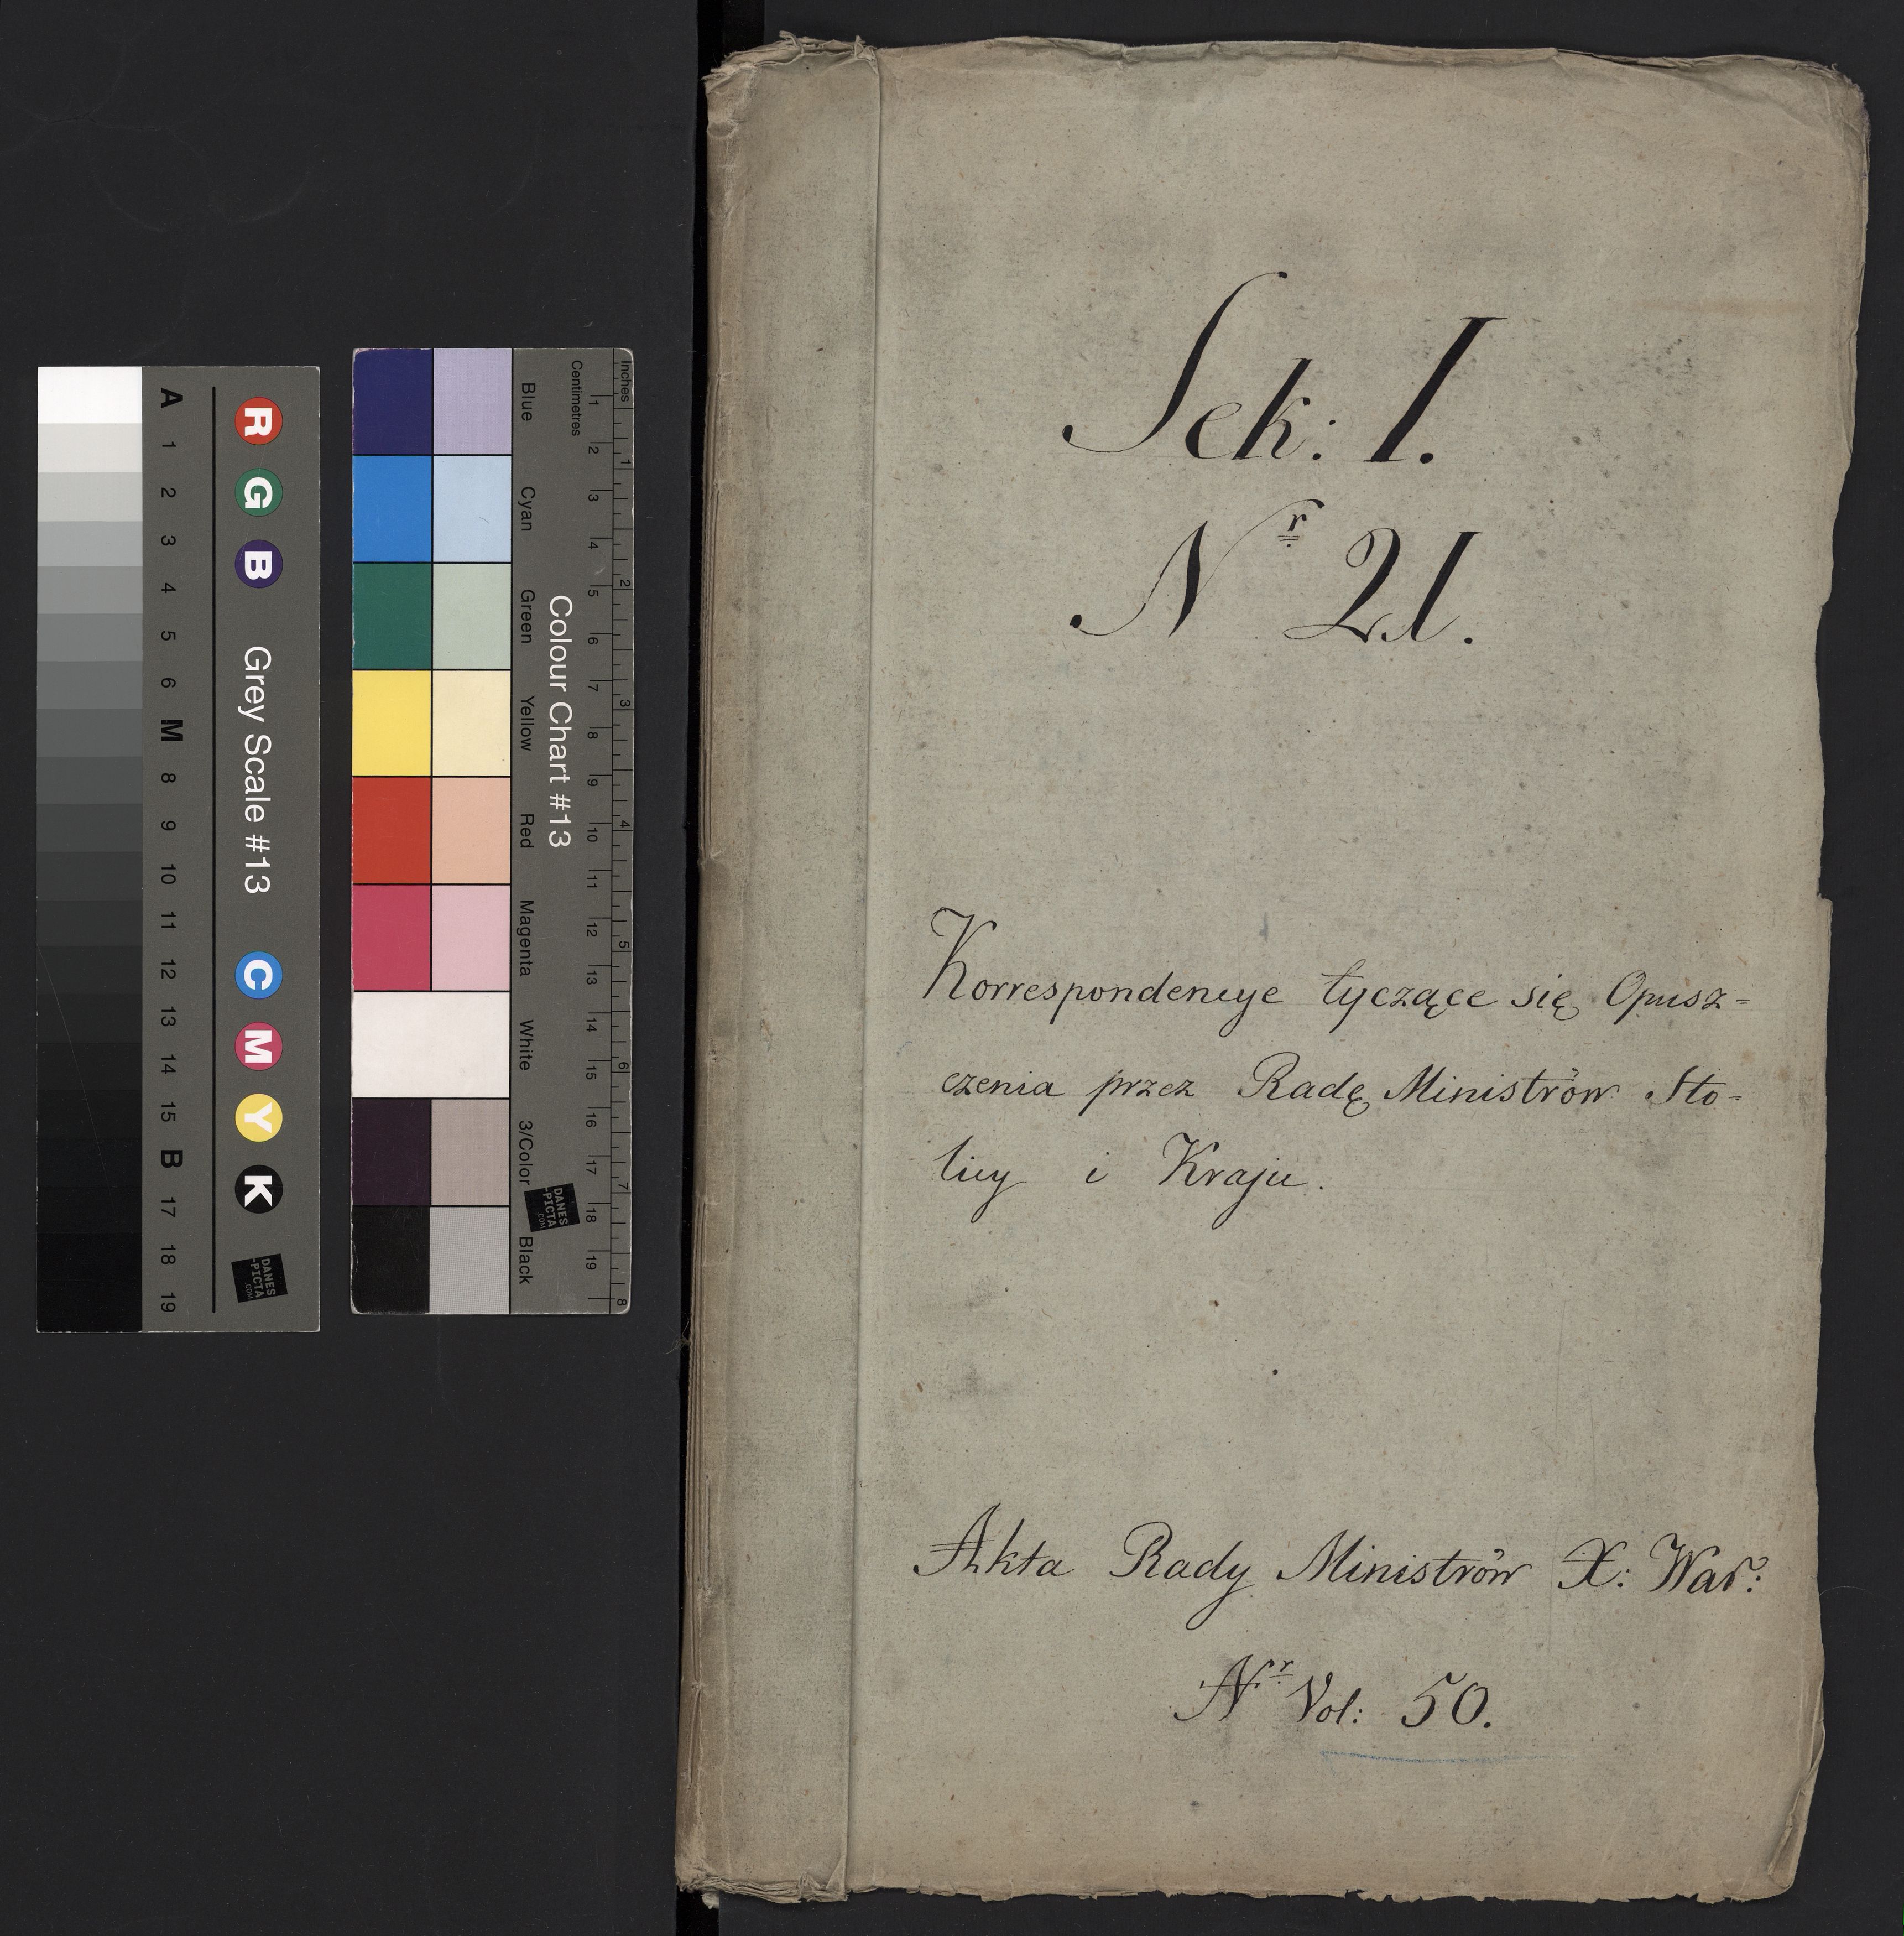 Sek: I.
Nr 21.
Korrespondencye tyczące się Opusz=
czenia przez Radę Ministrów Sto-
licy i Kraju.
Akta Rady Ministrów X: War:
Nr Vol: 50.
A 1 2 3 4 5 6 M 8 9 10 11 12 13 14 15 B 17 18 19
R G B Grey Scale #13 C M Y K
DANES
-PICTA
.COM
Blue Cyan Green Yellow Red Magenta White 3/Color Black
Colour Chart #13
DANES
-PICTA
.COM
Centimetres 1 2 3 4 5 6 7 8 9 10 11 12 13 14 15 16 17 18 19
Inches 1 2 3 4 5 6 7 8